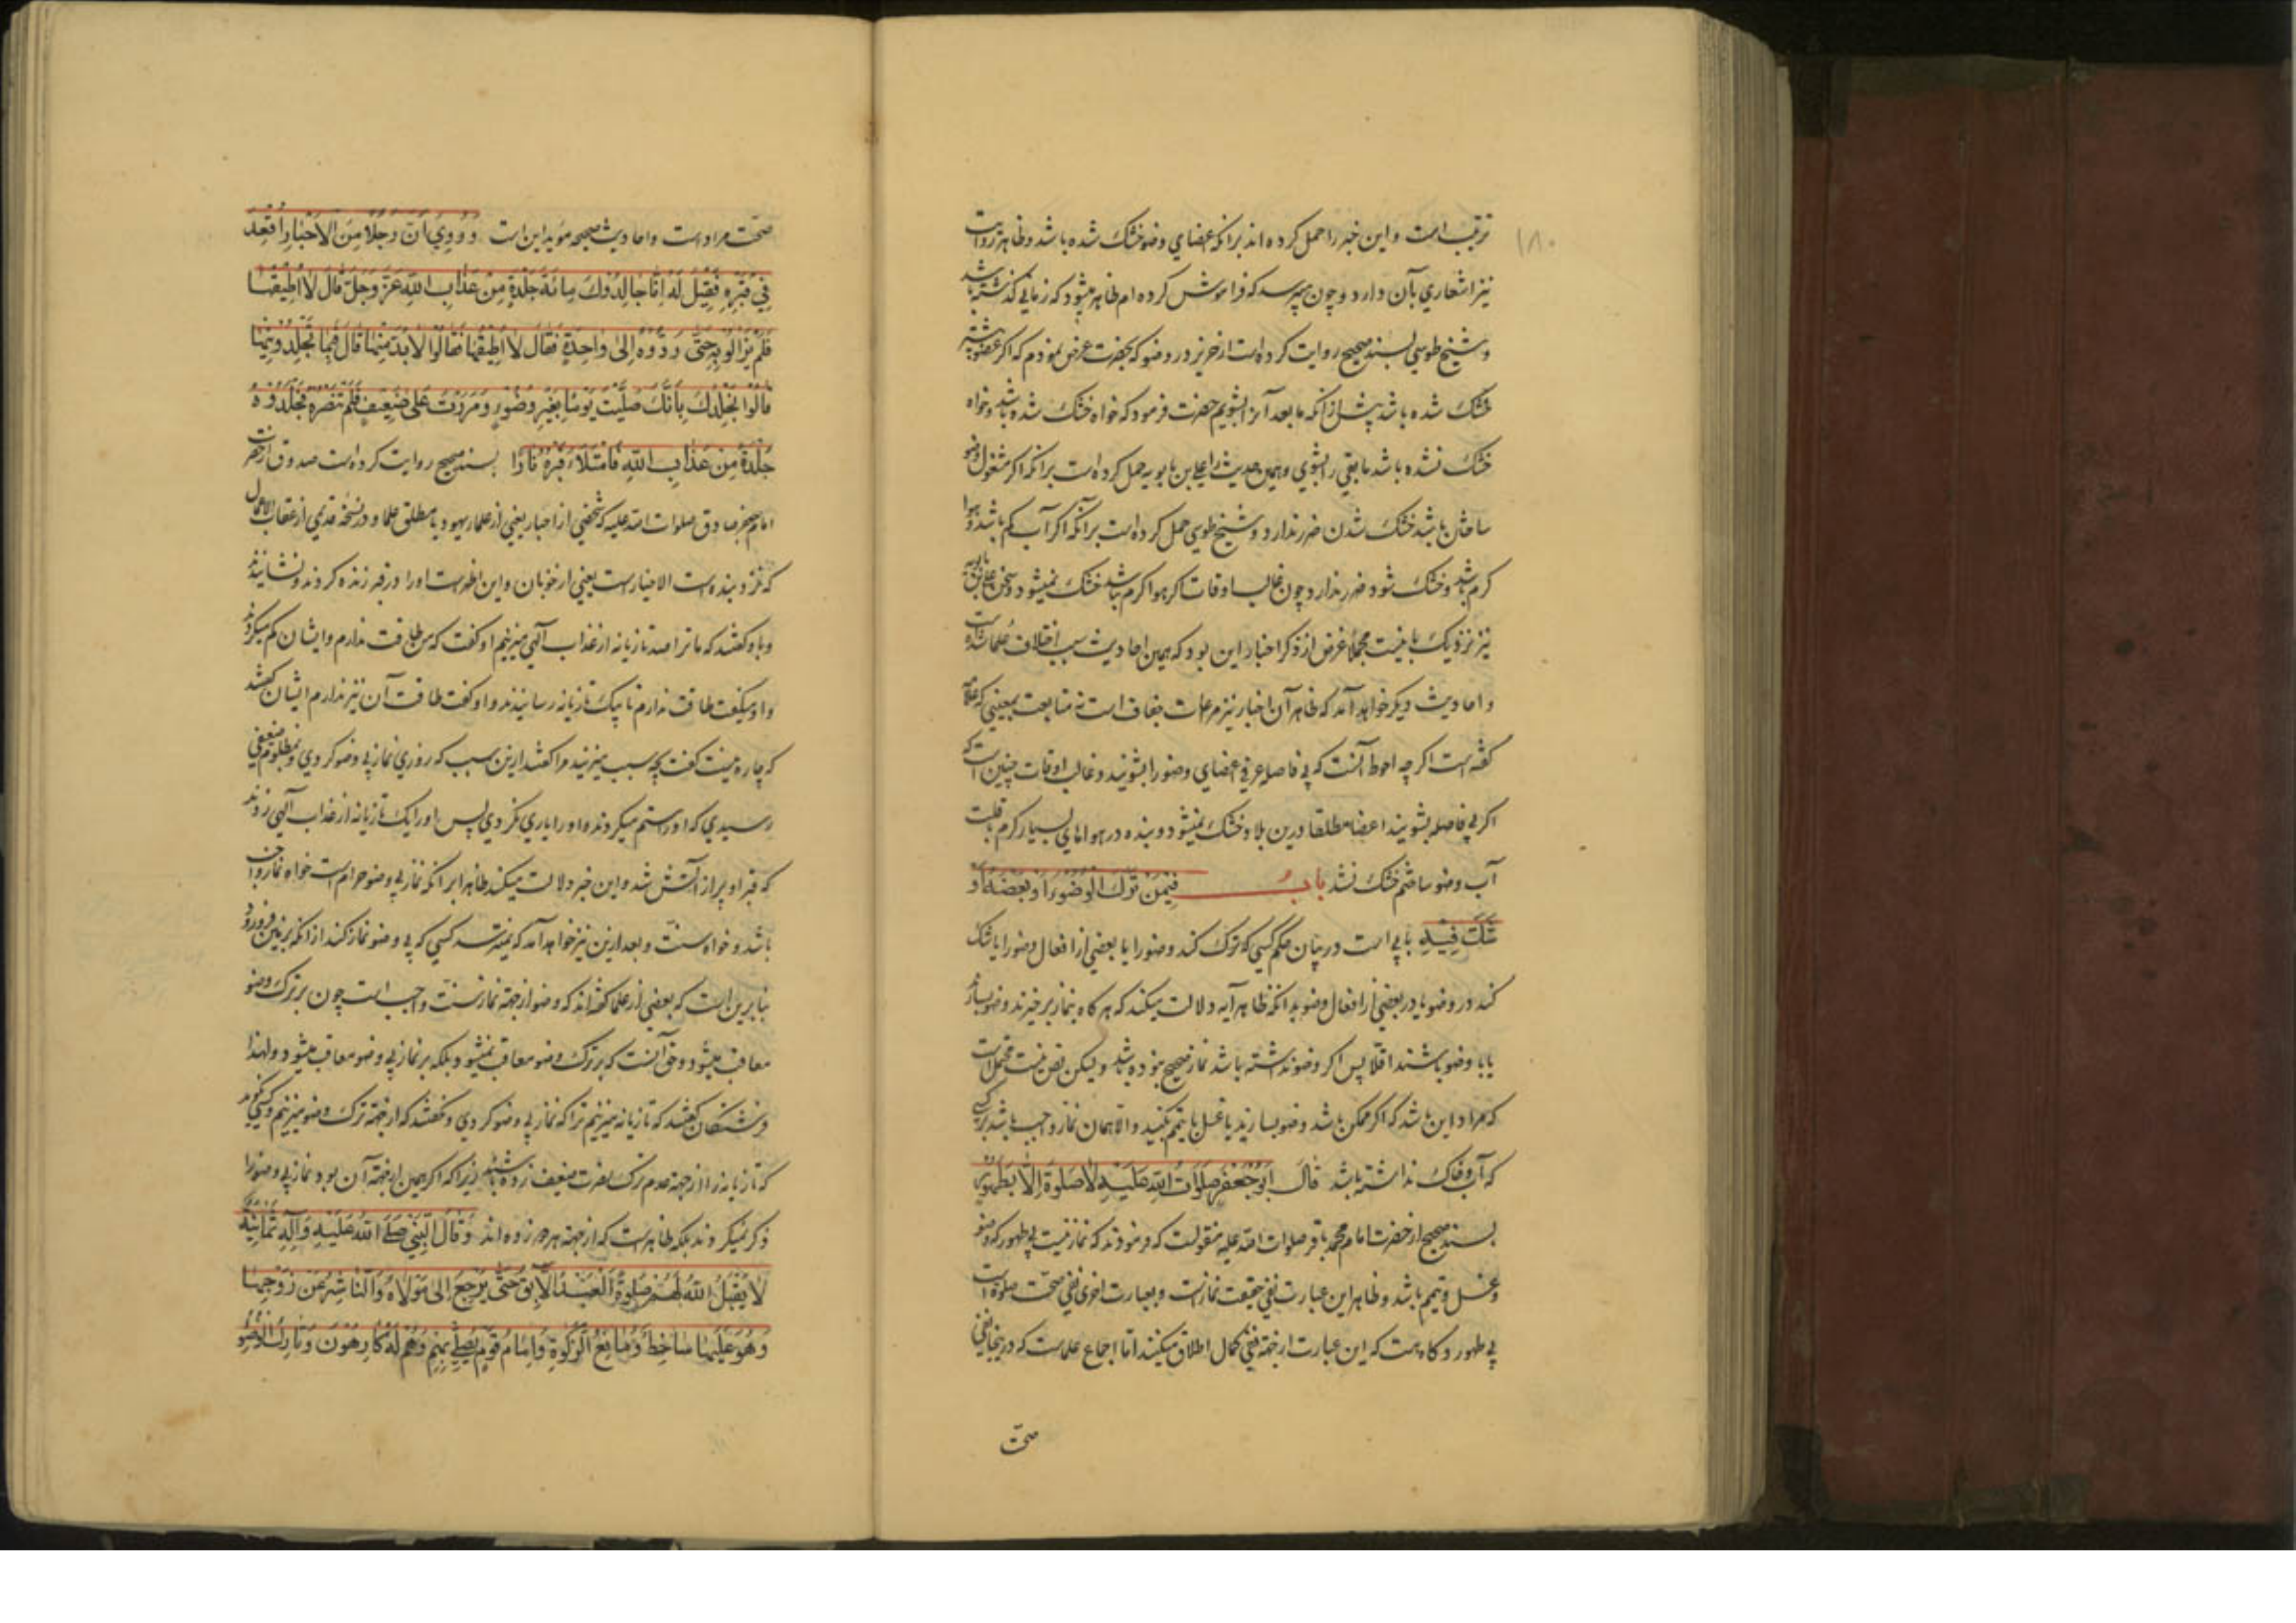 ۱۸۰
ترتیب است و این خبر را حمل کرده‌اند برانکه اعضای وضو خشک شده باشد و ظاهر روایت
نیز اشعاری بآن دارد و چون میپرسد که فراموش کرده‌ام ظاهر میشود که زمانی گذشته باشد
و شیخ طوسی بسند صحیح روایت کرده است از حریز در وضو که بحضرت عرض نمودم که اگر عضو پیشتر
خشک شده باشد پیش از آنکه ما بعد آنرا بشویم حضرت فرمود که خواه خشک شده باشد و خواه
خشک نشده باشد ما بقی را بشوی و همین حدیث را علی بن بابویه حمل کرده است برانکه اگر مشغول وضو
ساختن باشد خشک شدن ضرر ندارد و شیخ طوسی حمل کرده است برانکه اگر آب کم باشد و هوا
کرم باشد و خشک شود ضرر ندارد چون غالب اوقات اگر هوا کرم نباشد خشک نمیشود و سخن علی بن بابویه
نیز نزدیک باینست مجملا غرض از ذکر اخبار این بود که همین احادیث سبب اختلاف علما شده است
و احادیث دیگر خواهد آمد که ظاهر آن اخبار نیز مراعات جفاف است نه متابعت بمعنی که علامه
گفته است اگر چه احوط آنست که بی فاصله عرفی اعضای وضو را بشویند و غالب اوقات چنین است که
اگر بی فاصله بشویند اعضا مطلقا درین بلاد خشک نمیشود و بنده در هواهای بسیار کرم بقلت
آب وضو ساختم خشک نشد باب فیمن ترک الوضوء او بعضه او
شک فیه بابی است در بیان حکم کسی که ترک کند وضو را یا بعضی از افعال وضو را یا شک
کند در وضو یا در بعضی از افعال وضو بدانکه ظاهر آیه دلالت میکند که هر کاه بنماز برخیزند وضو بسازند
یا با وضو باشند اقلا پس اگر وضو نداشته باشد نماز صحیح نبوده باشد و لیکن نص نیست محتمل است
که مراد این باشد که اگر ممکن باشد وضو بسازند یا غسل یا تیمم بکنید و الا همان نماز واجب باشد بر کسی
که آب و خاک نداشته باشد قال ابو جعفر صلوات الله علیه لا صلوة الا بطهور
بسند صحیح از حضرت امام محمد باقر صلوات الله علیه منقولست که فرمودند که نماز نیست بی طهور که وضو
و غسل و تیمم باشد و ظاهر این عبارت نفی حقیقت نماز است و بعبارت اخری نفی صحت صلوة است
بی طهور و کاه هست که این عبارت از جهة نفی کمال اطلاق میکنند اما اجماع علماست که در اینجا نفی
صحت
صحت مراد است و احادیث صحیحه مؤید این است وَرُوِيَ أَنَّ رَجُلًا مِنَ الْأَحْبَارِ أُقْعِدَ
فِي قَبْرِهِ فَقِيلَ لَهُ إِنَّا جَالِدُوكَ مِائَةَ جَلْدَةٍ مِنْ عَذَابِ اللهِ عَزَّ وَجَلَّ قَالَ لَا أُطِيقُهَا
فَلَمْ يَزَالُوا بِهِ حَتَّى رَدُّوهُ إِلَى وَاحِدَةٍ فَقَالَ لَا أُطِيقُهَا فَقَالُوا لَا بُدَّ مِنْهَا قَالَ فَبِمَا تَجْلِدُونِيهَا
قَالُوا نَجْلِدُكَ بِأَنَّكَ صَلَّيْتَ يَوْمًا بِغَيْرِ وُضُوءٍ وَمَرَرْتَ عَلَى ضَعِيفٍ فَلَمْ تَنْصُرْهُ فَجَلَدُوهُ
جَلْدَةً مِنْ عَذَابِ اللهِ فَامْتَلَأَ قَبْرُهُ نَارًا بسند صحیح روایت کرده است صدوق از حضرت
امام جعفر صادق صلوات الله علیه که شخصی از احبار یعنی از علمای یهود یا مطلق علما و در نسخه قدیمی از عقاب الاعمال
که نزد بنده است الاخیار است یعنی از خوبان و این اظهر است او را در قبر زنده کردند و نشانیدند
و باو گفتند که ما ترا صد تازیانه از عذاب الهی میزنیم او گفت که من طاقت ندارم و ایشان کم میکردند
و او میگفت طاقت ندارم تا بیک تازیانه رسانیدند و او گفت طاقت آن نیز ندارم ایشان گفتند
که چاره نیست گفت بچه سبب میزنید مرا گفتند ازین سبب که روزی نماز بی وضو کردی و بمظلوم ضعیفی
رسیدی که او را ستم میکردند و او را یاری نکردی پس او را یک تازیانه از عذاب الهی زدند
که قبر او پر از آتش شد و این خبر دلالت میکند ظاهرا برانکه نماز بی وضو حرام است خواه نماز واجب
باشد و خواه سنت و بعد ازین نیز خواهد آمد که نمیترسد کسی که بی وضو نماز کند از انکه بزمین فرو رود
بنابرین است که بعضی از علما گفته‌اند که وضو از جهة نماز سنت واجب است چون بر ترک وضو
معاقب میشود و حق آنست که بر ترک وضو معاقب نمیشود بلکه بر نماز بی وضو معاقب میشود و لهذا
فرشتگان گفتند که تازیانه میزنیم ترا که نماز بی وضو کردی و نگفتند که از جهة ترک وضو میزنیم و کسی نگوید
که تازیانه را از جهة عدم ترک نصرت ضعیف زده باشند زیرا که اگر همین از جهة آن بود نماز بی وضو را
ذکر نمیکردند بلکه ظاهر است که از جهة هر دو زده‌اند وَقَالَ النَّبِيُّ صَلَّى اللهُ عَلَيْهِ وَآلِهِ ثَمَانِيَةٌ
لَا يَقْبَلُ اللهُ لَهُمْ صَلٰوةً الْعَبْدُ الْآبِقُ حَتَّى يَرْجِعَ إِلَى مَوْلَاهُ وَالنَّاشِزُ عَنْ زَوْجِهَا
وَهُوَ عَلَيْهَا سَاخِطٌ وَمَانِعُ الزَّكٰوةِ وَإِمَامُ قَوْمٍ يُصَلِّي بِهِمْ وَهُمْ لَهُ كَارِهُونَ وَتَارِكُ الْوُضُوءِ